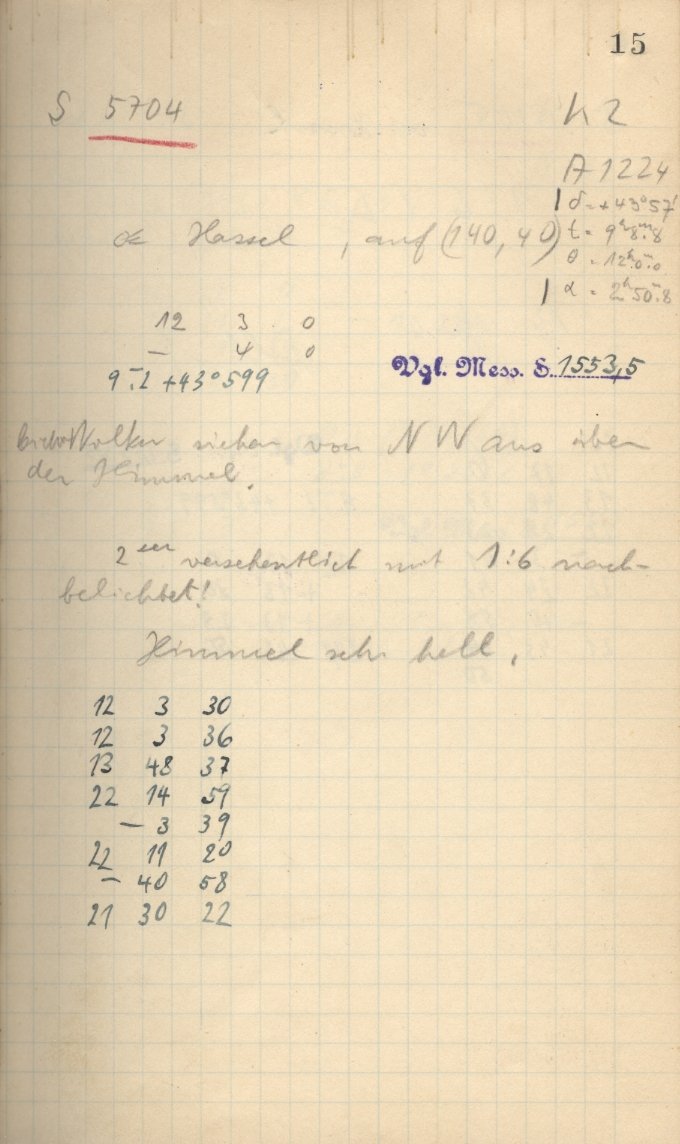 15
S 5704
h 2
A 1224
δ = +43°57'
α Hassel, auf (140, 40)
t = 9ʰ8ᵐ.8
θ = 12ʰ0ᵐ.0
α = 2ʰ50ᵐ.8
12 3 0
– 4 0
9ᵐ.2 +43°599
Vgl. Mess. S. 1553,5
Wolken ziehen von NW aus über
den Himmel.
2 versehentlich mit 1:6 nach-
belichtet!
Himmel sehr hell.
12 3 30
12 3 36
13 48 37
22 14 59
– 3 39
22 11 20
– 40 58
21 30 22